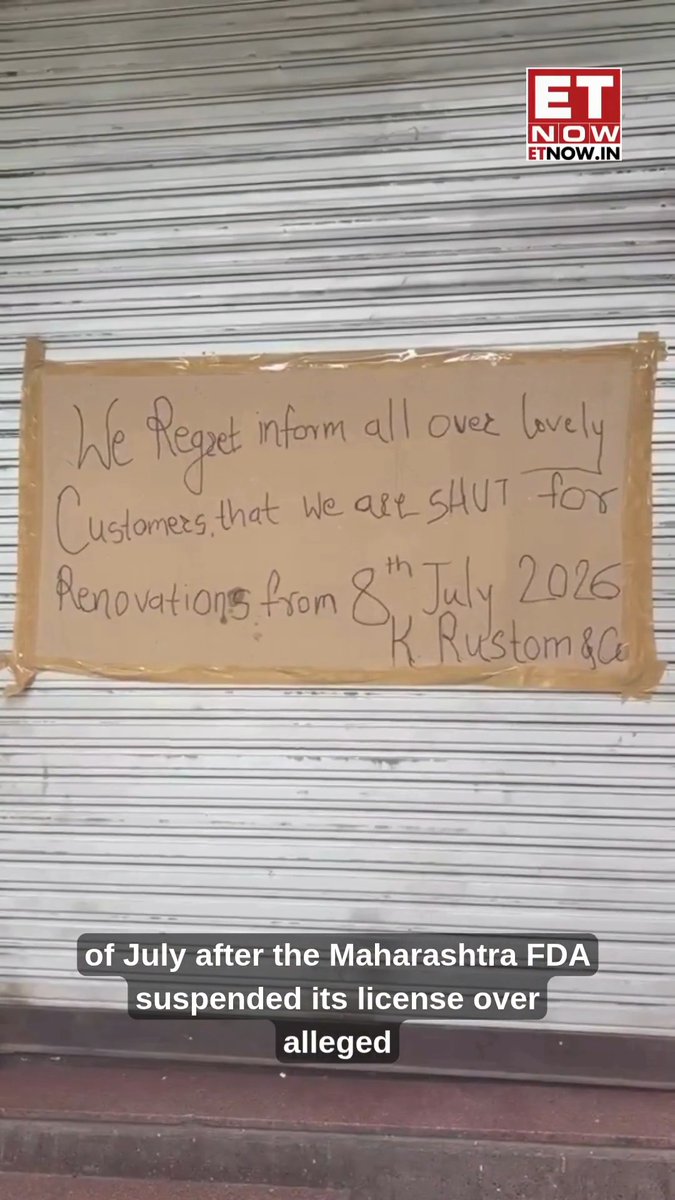 ET
NOW
ETNOW.IN
We Regret inform all over lovely
Customers, that we are SHUT for
Renovations from 8th July 2026
K. Rustom & Co
of July after the Maharashtra FDA
suspended its license over
alleged